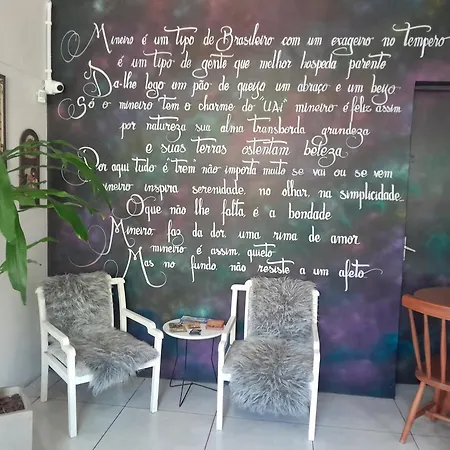 Mineiro é um tipo de Brasileiro com um exageiro no tempero
é um tipo de gente que melhor hospeda parente
Da-lhe logo um pão de queijo um abraço e um beijo
Só o mineiro tem o charme do "UAI" mineiro é feliz assim
por natureza sua alma transborda grandeza
e suas terras ostentam beleza
Por aqui tudo é "trem" não importa muito se vai ou se vem
mineiro inspira serenidade no olhar, na simplicidade
O que não lhe falta, é a bondade
Mineiro faz da dor, uma rima de amor
mineiro é assim, quieto
Mas no fundo, não resiste a um afeto